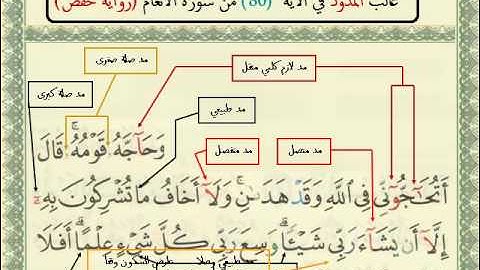 غالب المدود في الآية (80) من سورة الأنعام (رواية حفص)
مد صلة صغرى
مد لازم كلمي مثقل
مد صلة كبرى
مد طبيعي
وَحَآجَّهُۥ قَوْمُهُۥ ۚ قَالَ
مد منفصل
مد متصل
أَتُحَـٰٓجُّوٓنِّى فِى ٱللَّهِ وَقَدْ هَدَىٰنِ ۚ وَلَآ أَخَافُ مَا تُشْرِكُونَ بِهِۦٓ
إِلَّآ أَن يَشَآءَ رَبِّى شَيْـًٔا ۗ وَسِعَ رَبِّى كُلَّ شَىْءٍ عِلْمًا ۗ أَفَلَا
مد طبيعي وصلا عارض للسكون وقفا